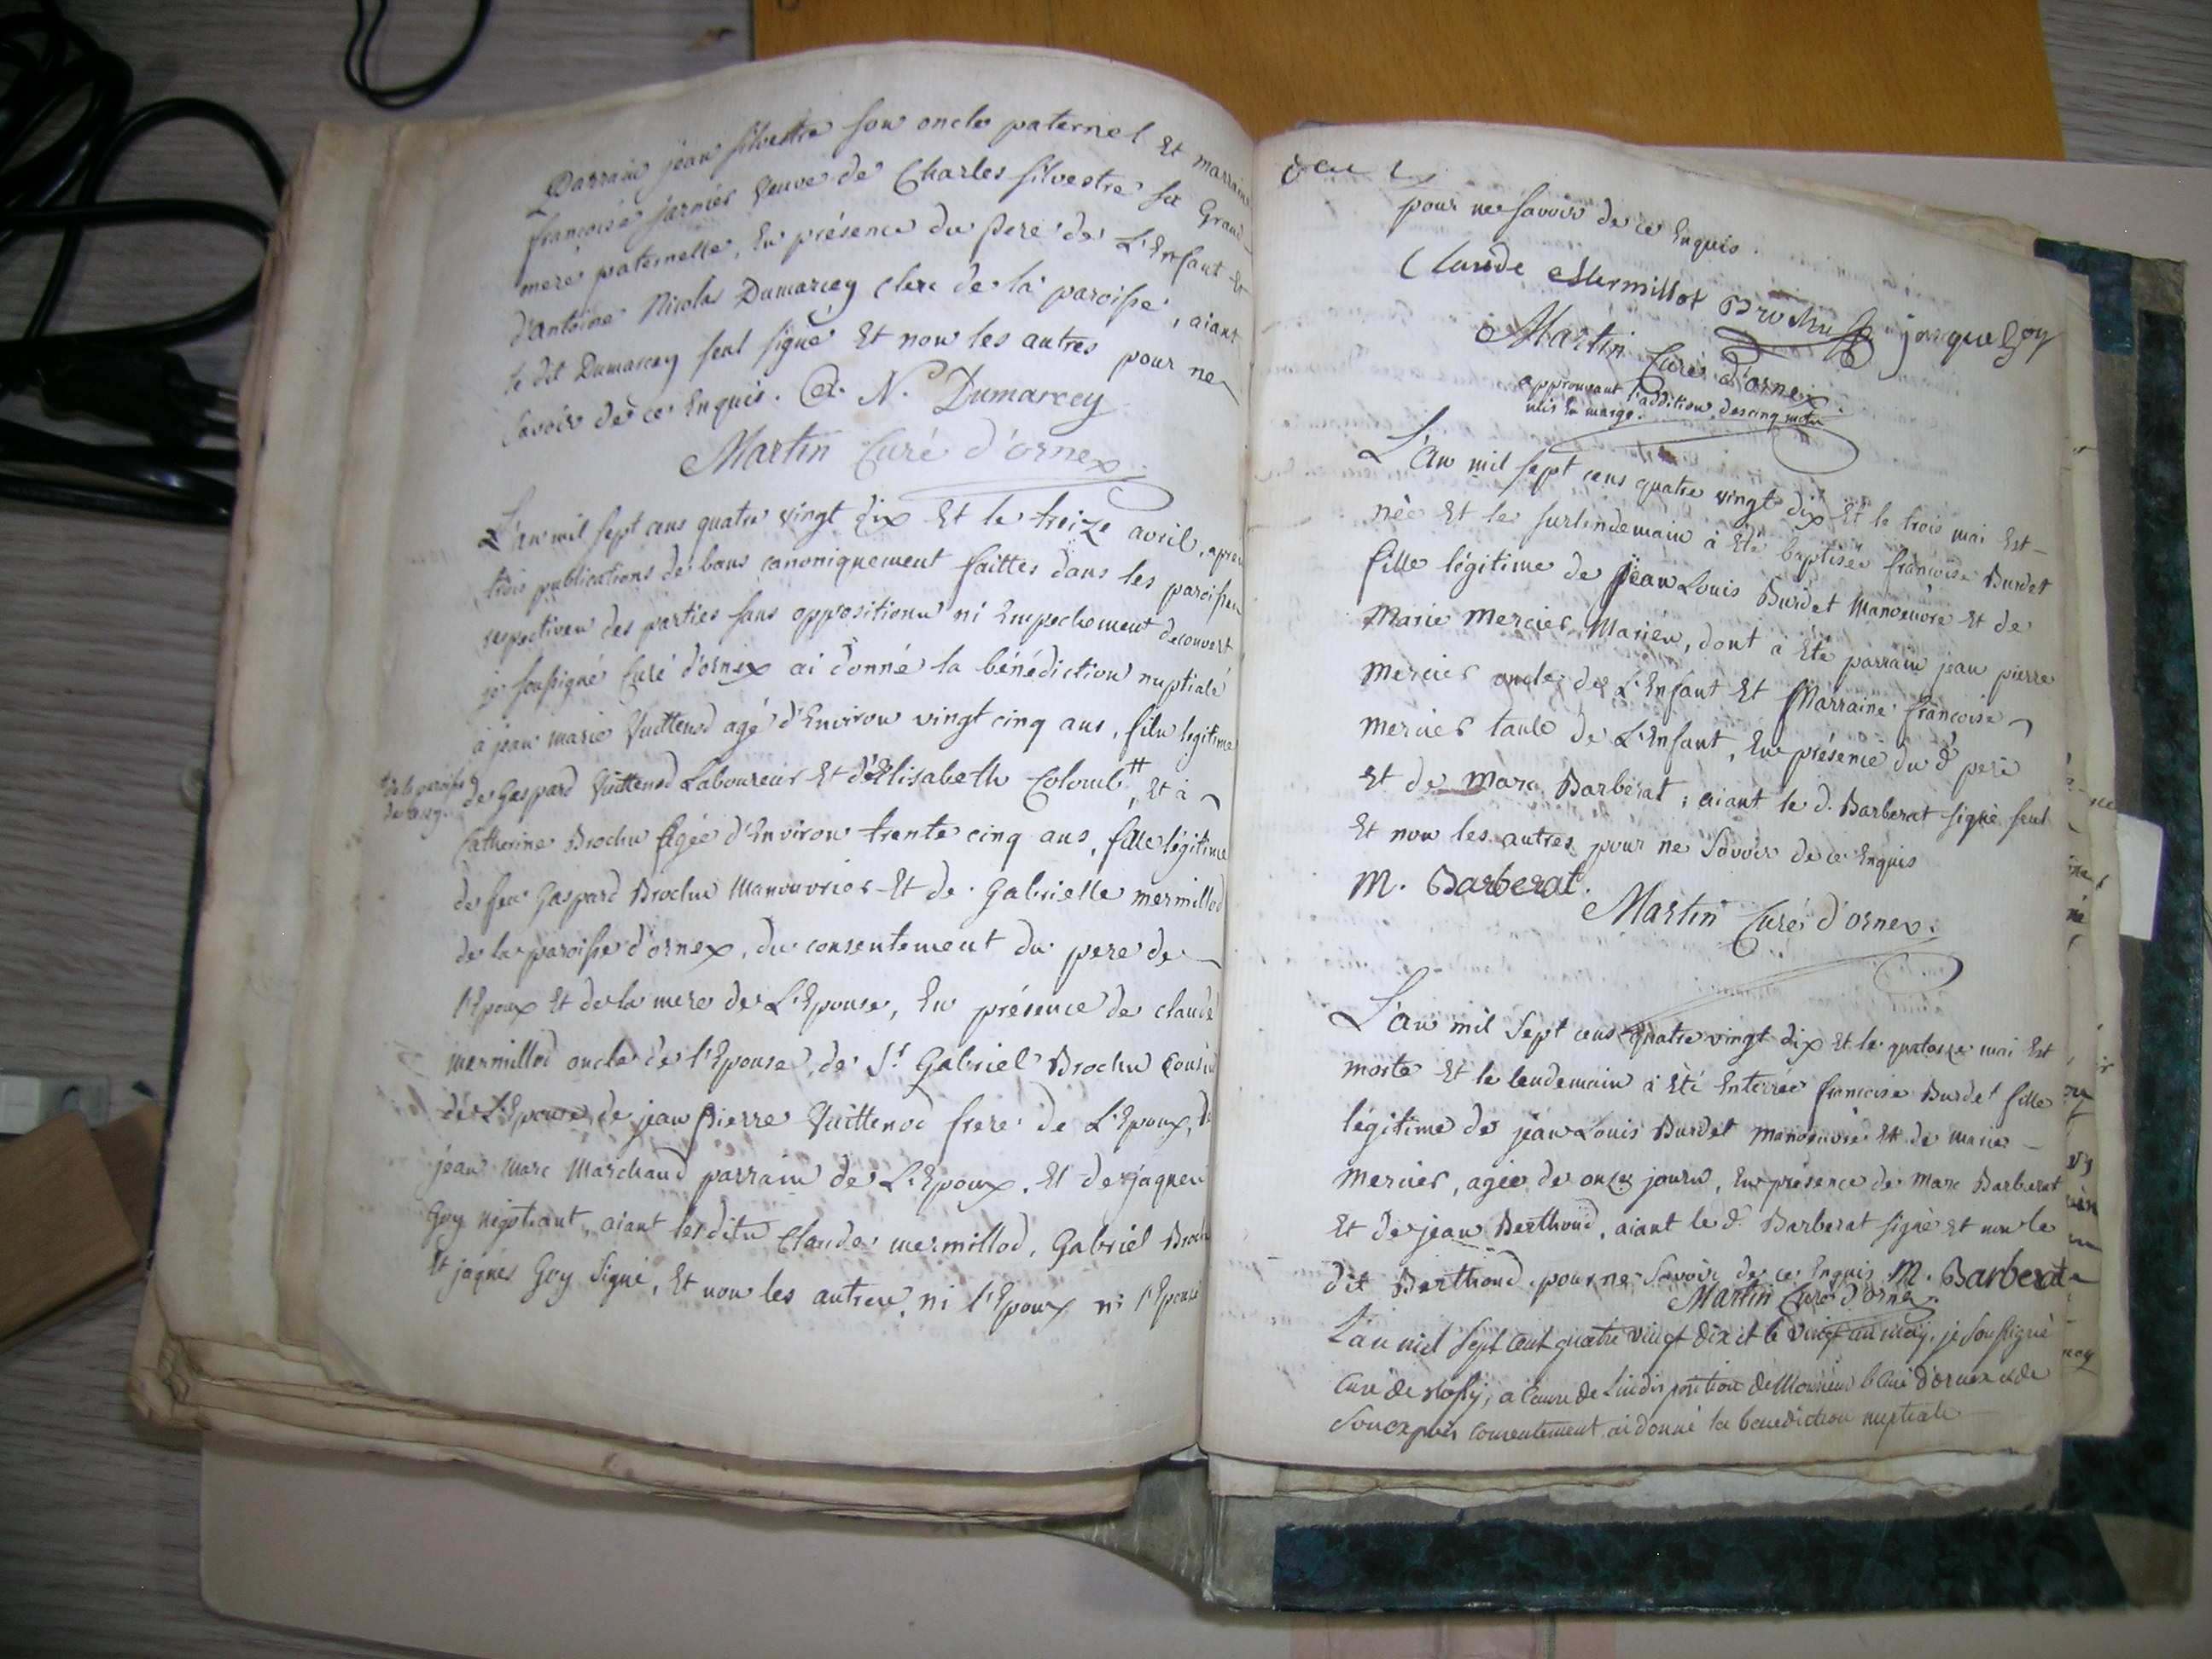 Parrain jean silvestre son oncle paternel Et marraine
françoise jarnier veuve de Charles silvestre sa Grand
mere paternelle, En présence du Pere de L'Enfant Et
d'antoine Nicolas Dumarcey Clerc de la paroisse, aiant
le dit Dumarcey seul signé Et non les autres pour ne
savoir de ce Enquis. A. N. Dumarcey
Martin Curé d'ornex
L'an mil sept cens quatre vingt dix Et le treize avril, apres
trois publications de bans canoniquement faittes dans les paroisses
respectives des parties sans oppositions ni Empechement decouvert
je soussigné Curé d'ornex ai donné la bénédiction nuptiale
à jean marie Vuittenod agé d'Environ vingt cinq ans, fils legitime
de Gaspard Vuittenod Laboureur Et d'Elisabeth Colomb #, Et à
# de la paroisse
Catherine Brochu agée d'Environ trente cinq ans, fille légitime
de feu Gaspard Brochu Manouvrier Et de Gabrielle mermillod
de la paroisse d'ornex, du consentement du pere de
l'Epoux Et de la mere de L'Epouse, En présence de claude
mermillod oncle de l'Epouse, de Sr. Gabriel Brochu Cousin
de L'Epouse, de jean Pierre Vuittenod frere de L'Epoux, de
jean Marc Marchand parrain de L'Epoux, Et de jaques
Goy négotiant, aiant les dits Claude mermillod, Gabriel Brochu
Et jaques Goy Signé, Et non les autres, ni l'Epoux ni l'Epouse
pour ne savoir de ce Enquis.
Claude Mermillot Brochu jacque Goy
Martin Curé d'ornex
approuvant l'addition des cinq mots
mis En marge.
L'an mil sept cens quatre vingt dix Et le trois mai Est
née Et le surlendemain à Eté baptisée françoise Burdet
fille légitime de jean Louis Burdet Manoeuvre Et de
Marie Mercier Mariés, dont à Eté parrain jean pierre
Mercier oncle de L'Enfant Et Marraine françoise
Mercier tante de L'Enfant, En présence du d. pere
Et de Marc Barberat; aiant le d. Barberat signé seul
Et non les autres pour ne Savoir de ce Enquis
M. Barberat.
Martin Curé d'ornex.
L'an mil Sept cens quatre vingt dix Et le quatorze mai Est
morte Et le lendemain à Eté Enterrée francoise Burdet fille
légitime de jean Louis Burdet manoeuvre Et de marie
Mercier, agée de onze jours, En présence de Marc Barberat
Et de jean Berthoud, aiant le d. Barberat signé Et non le
dit Berthoud pour ne Savoir de ce Enquis M. Barberat
Martin Curé d'ornex.
L'an mil sept cent quatre vingt dix et le vingt un may, je soussigné
Curé de , a cause de L'indisposition de Monsieur le Curé d'ornex et de
son exprés consentement ai donné la benediction nuptiale